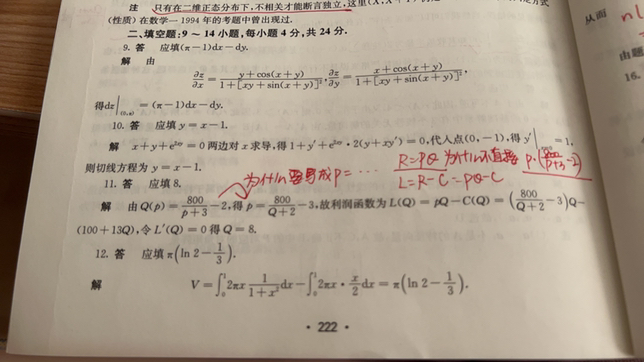 注 只有在二维正态分布下,不相关才能断言独立,这里
从而
(性质)在数学一 1994 年的考题中曾出现过.
二、填空题:9 ~ 14 小题,每小题 4 分,共 24 分.
由题
9. 答 应填(π−1)dx−dy.
16.
解 由
∂z/∂x = (y+cos(x+y))/(1+[xy+sin(x+y)]²), ∂z/∂y = (x+cos(x+y))/(1+[xy+sin(x+y)]²),
得dz| = (π−1)dx−dy.
10. 答 应填 y=x−1.
解 x+y+e^{2xy}=0 两边对 x 求导,得 1+y′+e^{2xy}·2(y+xy′)=0,代入点(0,−1),得 y′| =1,
则切线方程为 y=x−1.
为什么要导成p=… R=PQ 为什么不直接 P·(800/(P+3)−2)
L=R−C=PQ−C
11. 答 应填 8.
解 由 Q(p)=800/(p+3)−2,得 p=800/(Q+2)−3,故利润函数为 L(Q)=pQ−C(Q)=(800/(Q+2)−3)Q−
(100+13Q),令 L′(Q)=0 得 Q=8.
12. 答 应填 π(ln 2−1/3).
解 V=∫₀¹2πx 1/(1+x²)dx−∫₀¹2πx·x/2 dx=π(ln 2−1/3).
· 222 ·